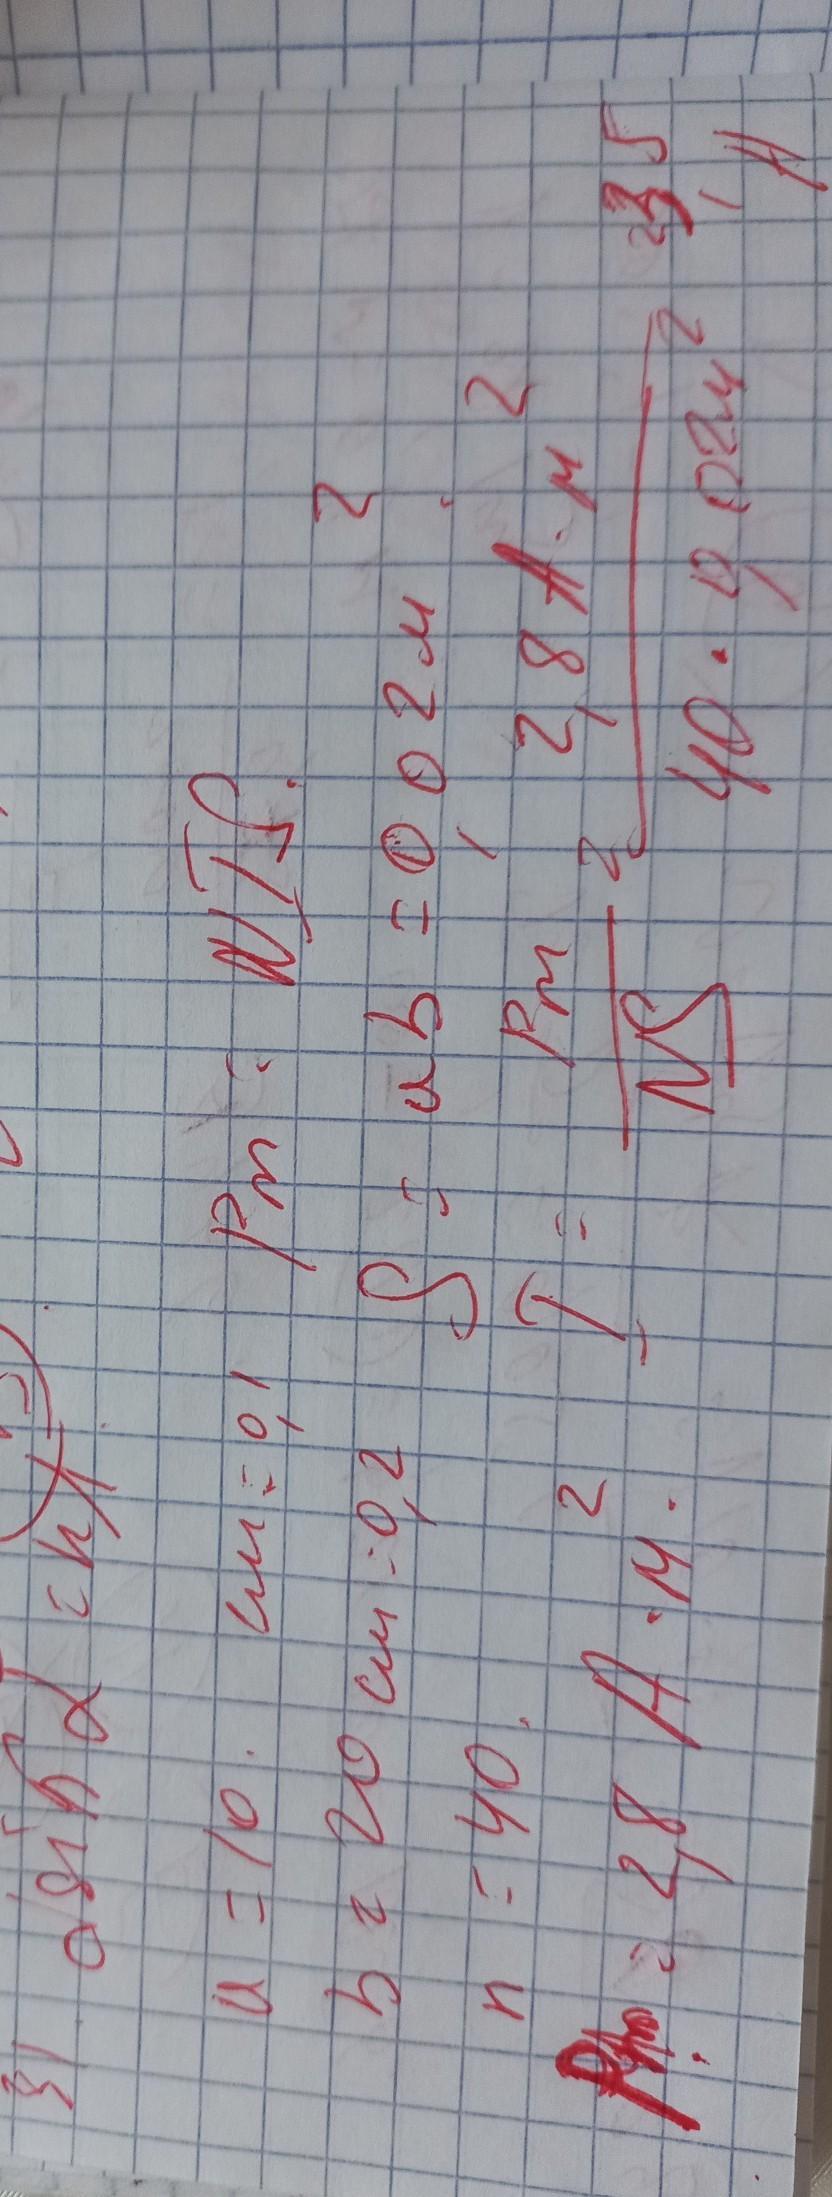 a = 10 см = 0,1 Pm = NIS.
b = 20 см = 0,2 S = ab = 0,02 м²
n = 40. I = Pm / NS = 2,8 А·м² / 40 · 0,02 м² = 3,5 А
Pm = 2,8 А·м².